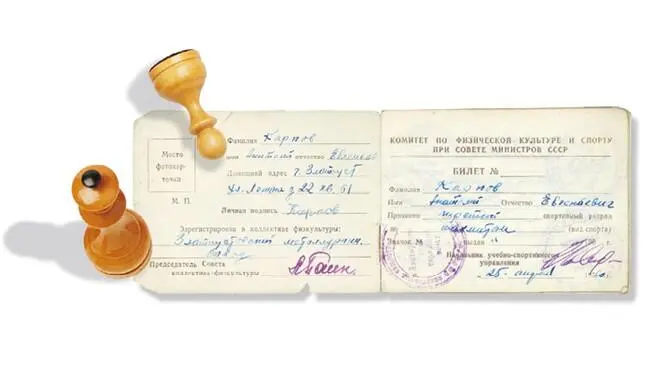 Место
фотокар-
точки
М. П.
Фамилия Карпов
имя Анатолий отчество Евгениев
Домашний адрес г. Златоуст
д 22 кв. 61
Личная подпись Карпов
Зарегистрирован в коллективе физкультуры:
Златоустовский металлургич.
Председатель Совета
коллектива физкультуры
КОМИТЕТ ПО ФИЗИЧЕСКОЙ КУЛЬТУРЕ И СПОРТУ
ПРИ СОВЕТЕ МИНИСТРОВ СССР
БИЛЕТ №
Фамилия Карпов
Имя Анатолий Отчество Евгениевич
Присвоен третий спортивный разряд
по шахматам (вид спорта)
Значок № выдан
Начальник учебно-спортивного
управления
"25" апреля